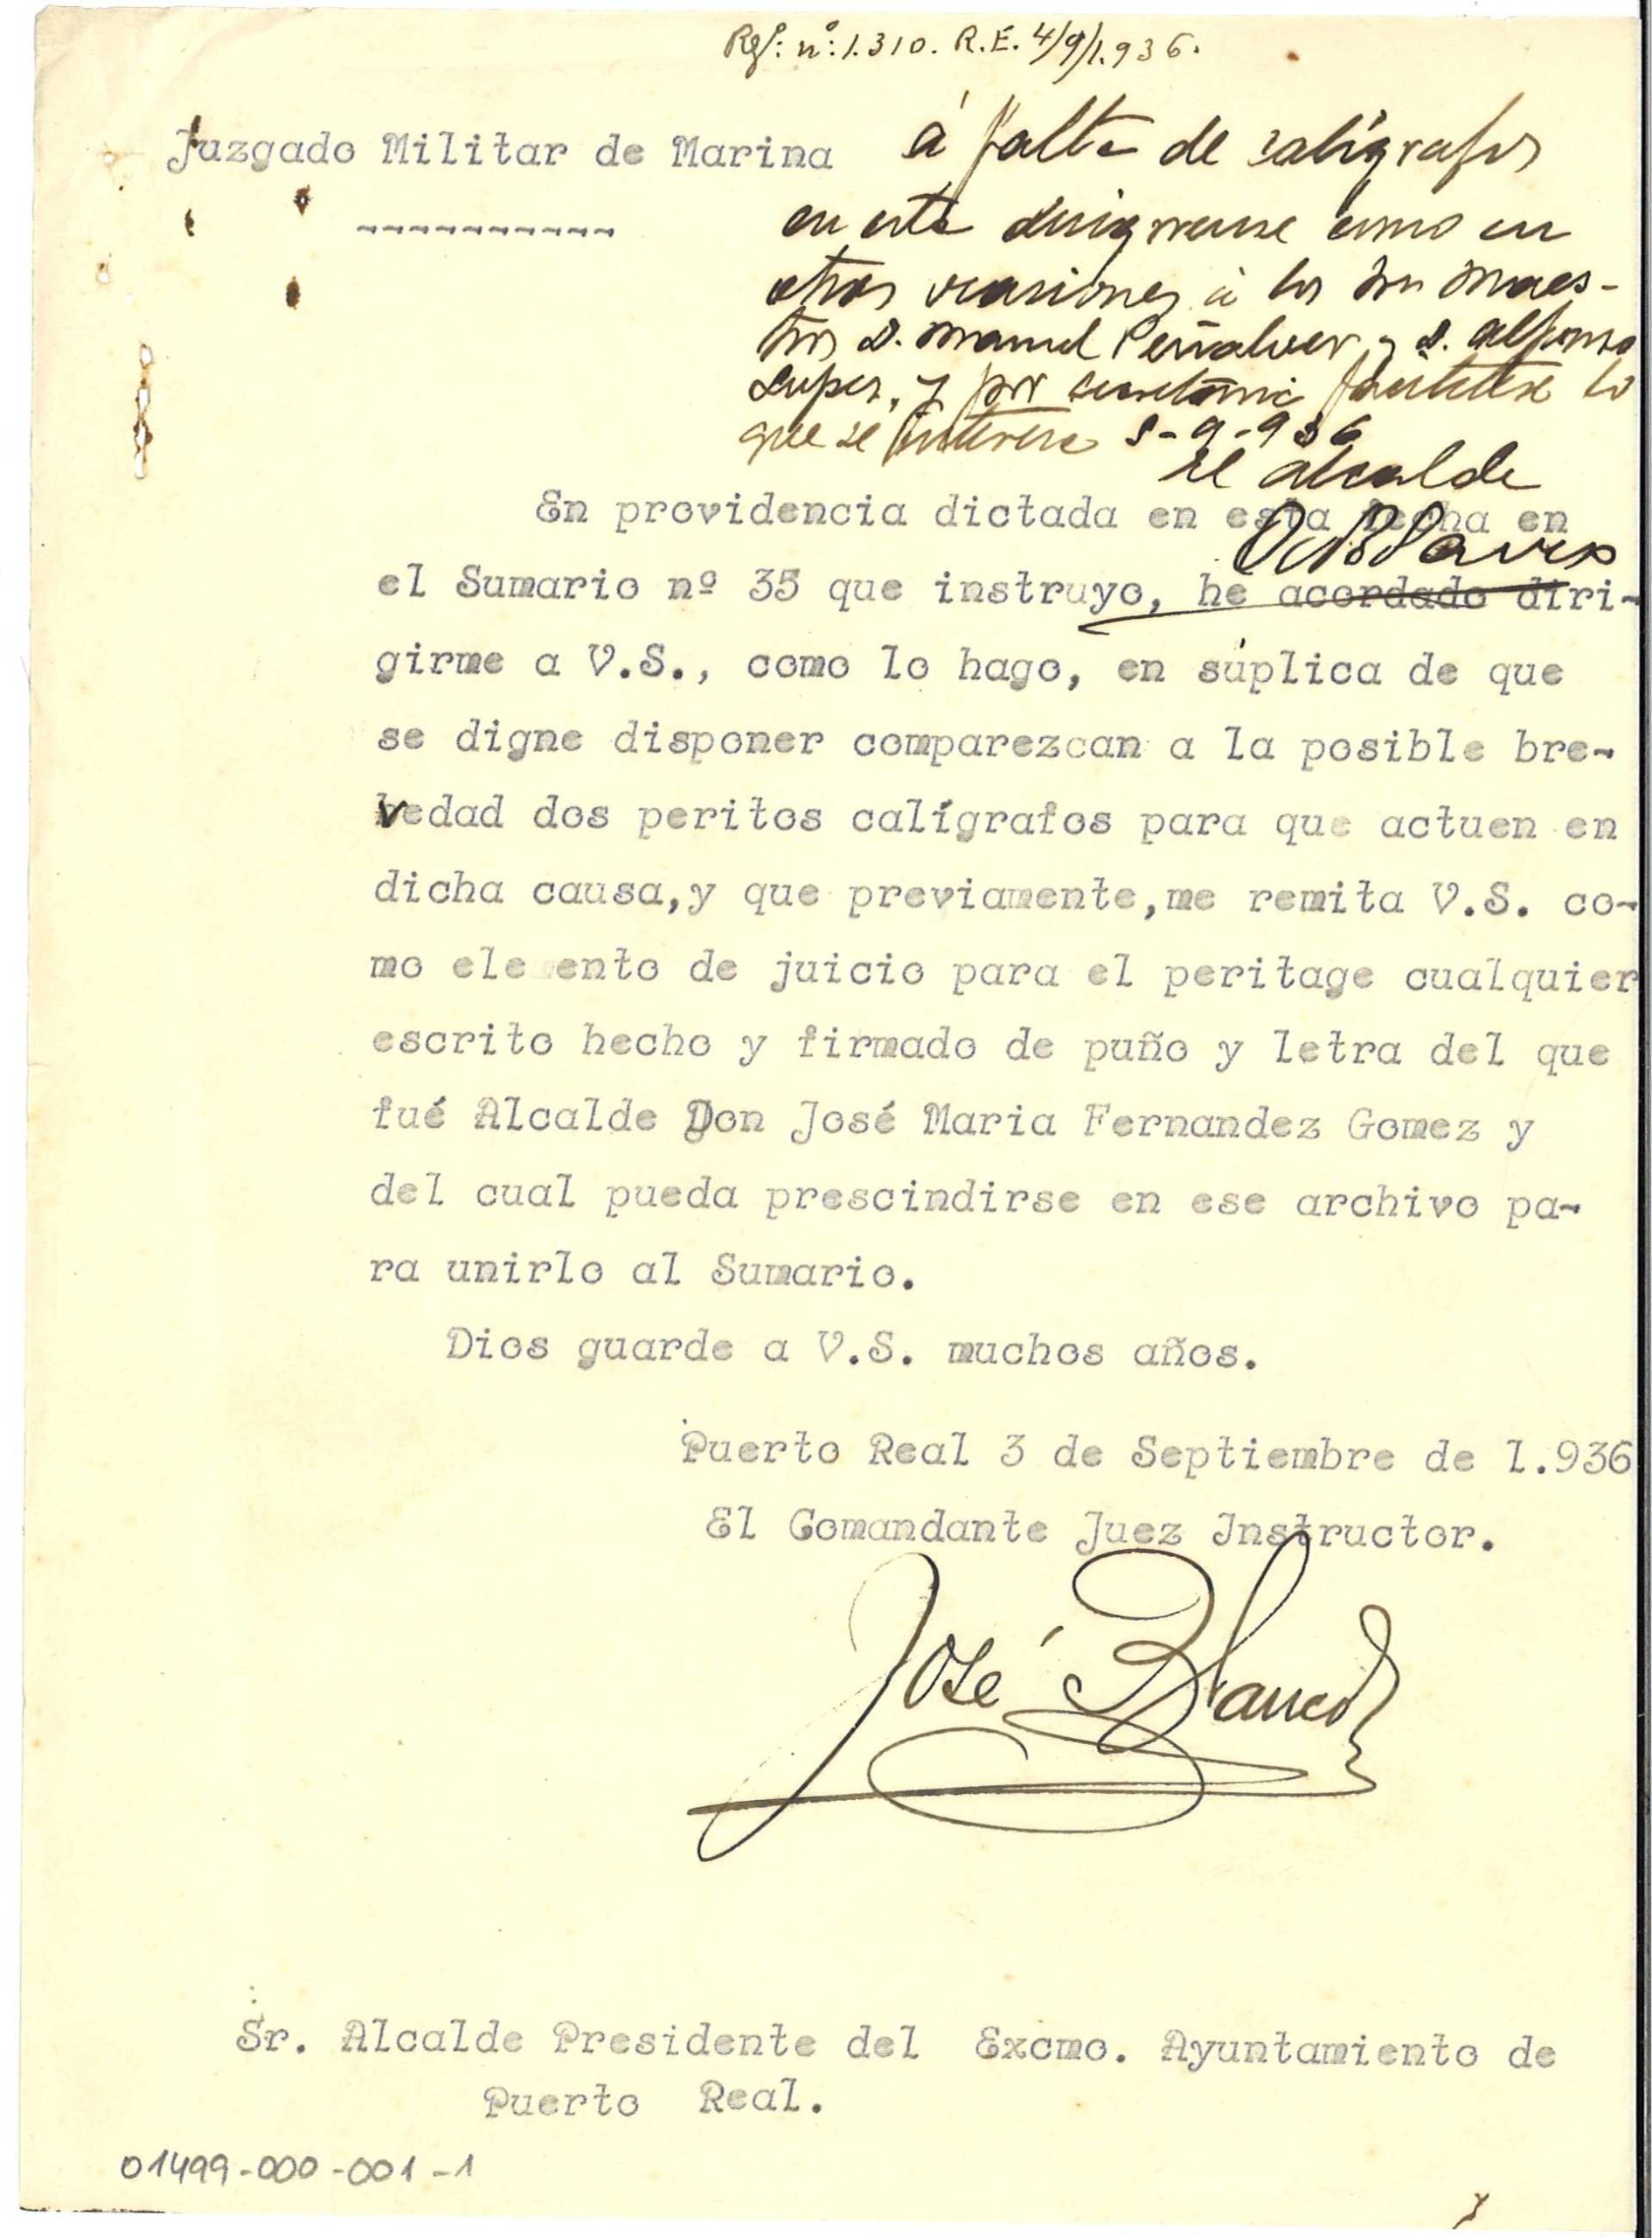 Refº: nº: 1.310. R.E. 4/9/1.936.
Juzgado Militar de Marina
-----------
á falta de caligrafos
en esta dirigirense como en
otras ocasiones á los Srs Maes-
tros D. Manuel Peñalver y D. Alfonso
Lopez, y por secretaria facilitese lo
que se interesa 5-9-936
El Alcalde
En providencia dictada en esta fecha en
el Sumario nº 35 que instruyo, he acordado diri-
girme a V.S., como lo hago, en súplica de que
se digne disponer comparezcan a la posible bre-
vedad dos peritos calígrafos para que actuen en
dicha causa,y que previamente,me remita V.S. co-
mo ele ento de juicio para el peritage cualquier
escrito hecho y firmado de puño y letra del que
fué Alcalde Don José Maria Fernandez Gomez y
del cual pueda prescindirse en ese archivo pa-
ra unirlo al Sumario.
Dios guarde a V.S. muchos años.
Puerto Real 3 de Septiembre de 1.936
El Comandante Juez Instructor.
José Blanco
Sr. Alcalde Presidente del Excmo. Ayuntamiento de
Puerto Real.
01499-000-001-1